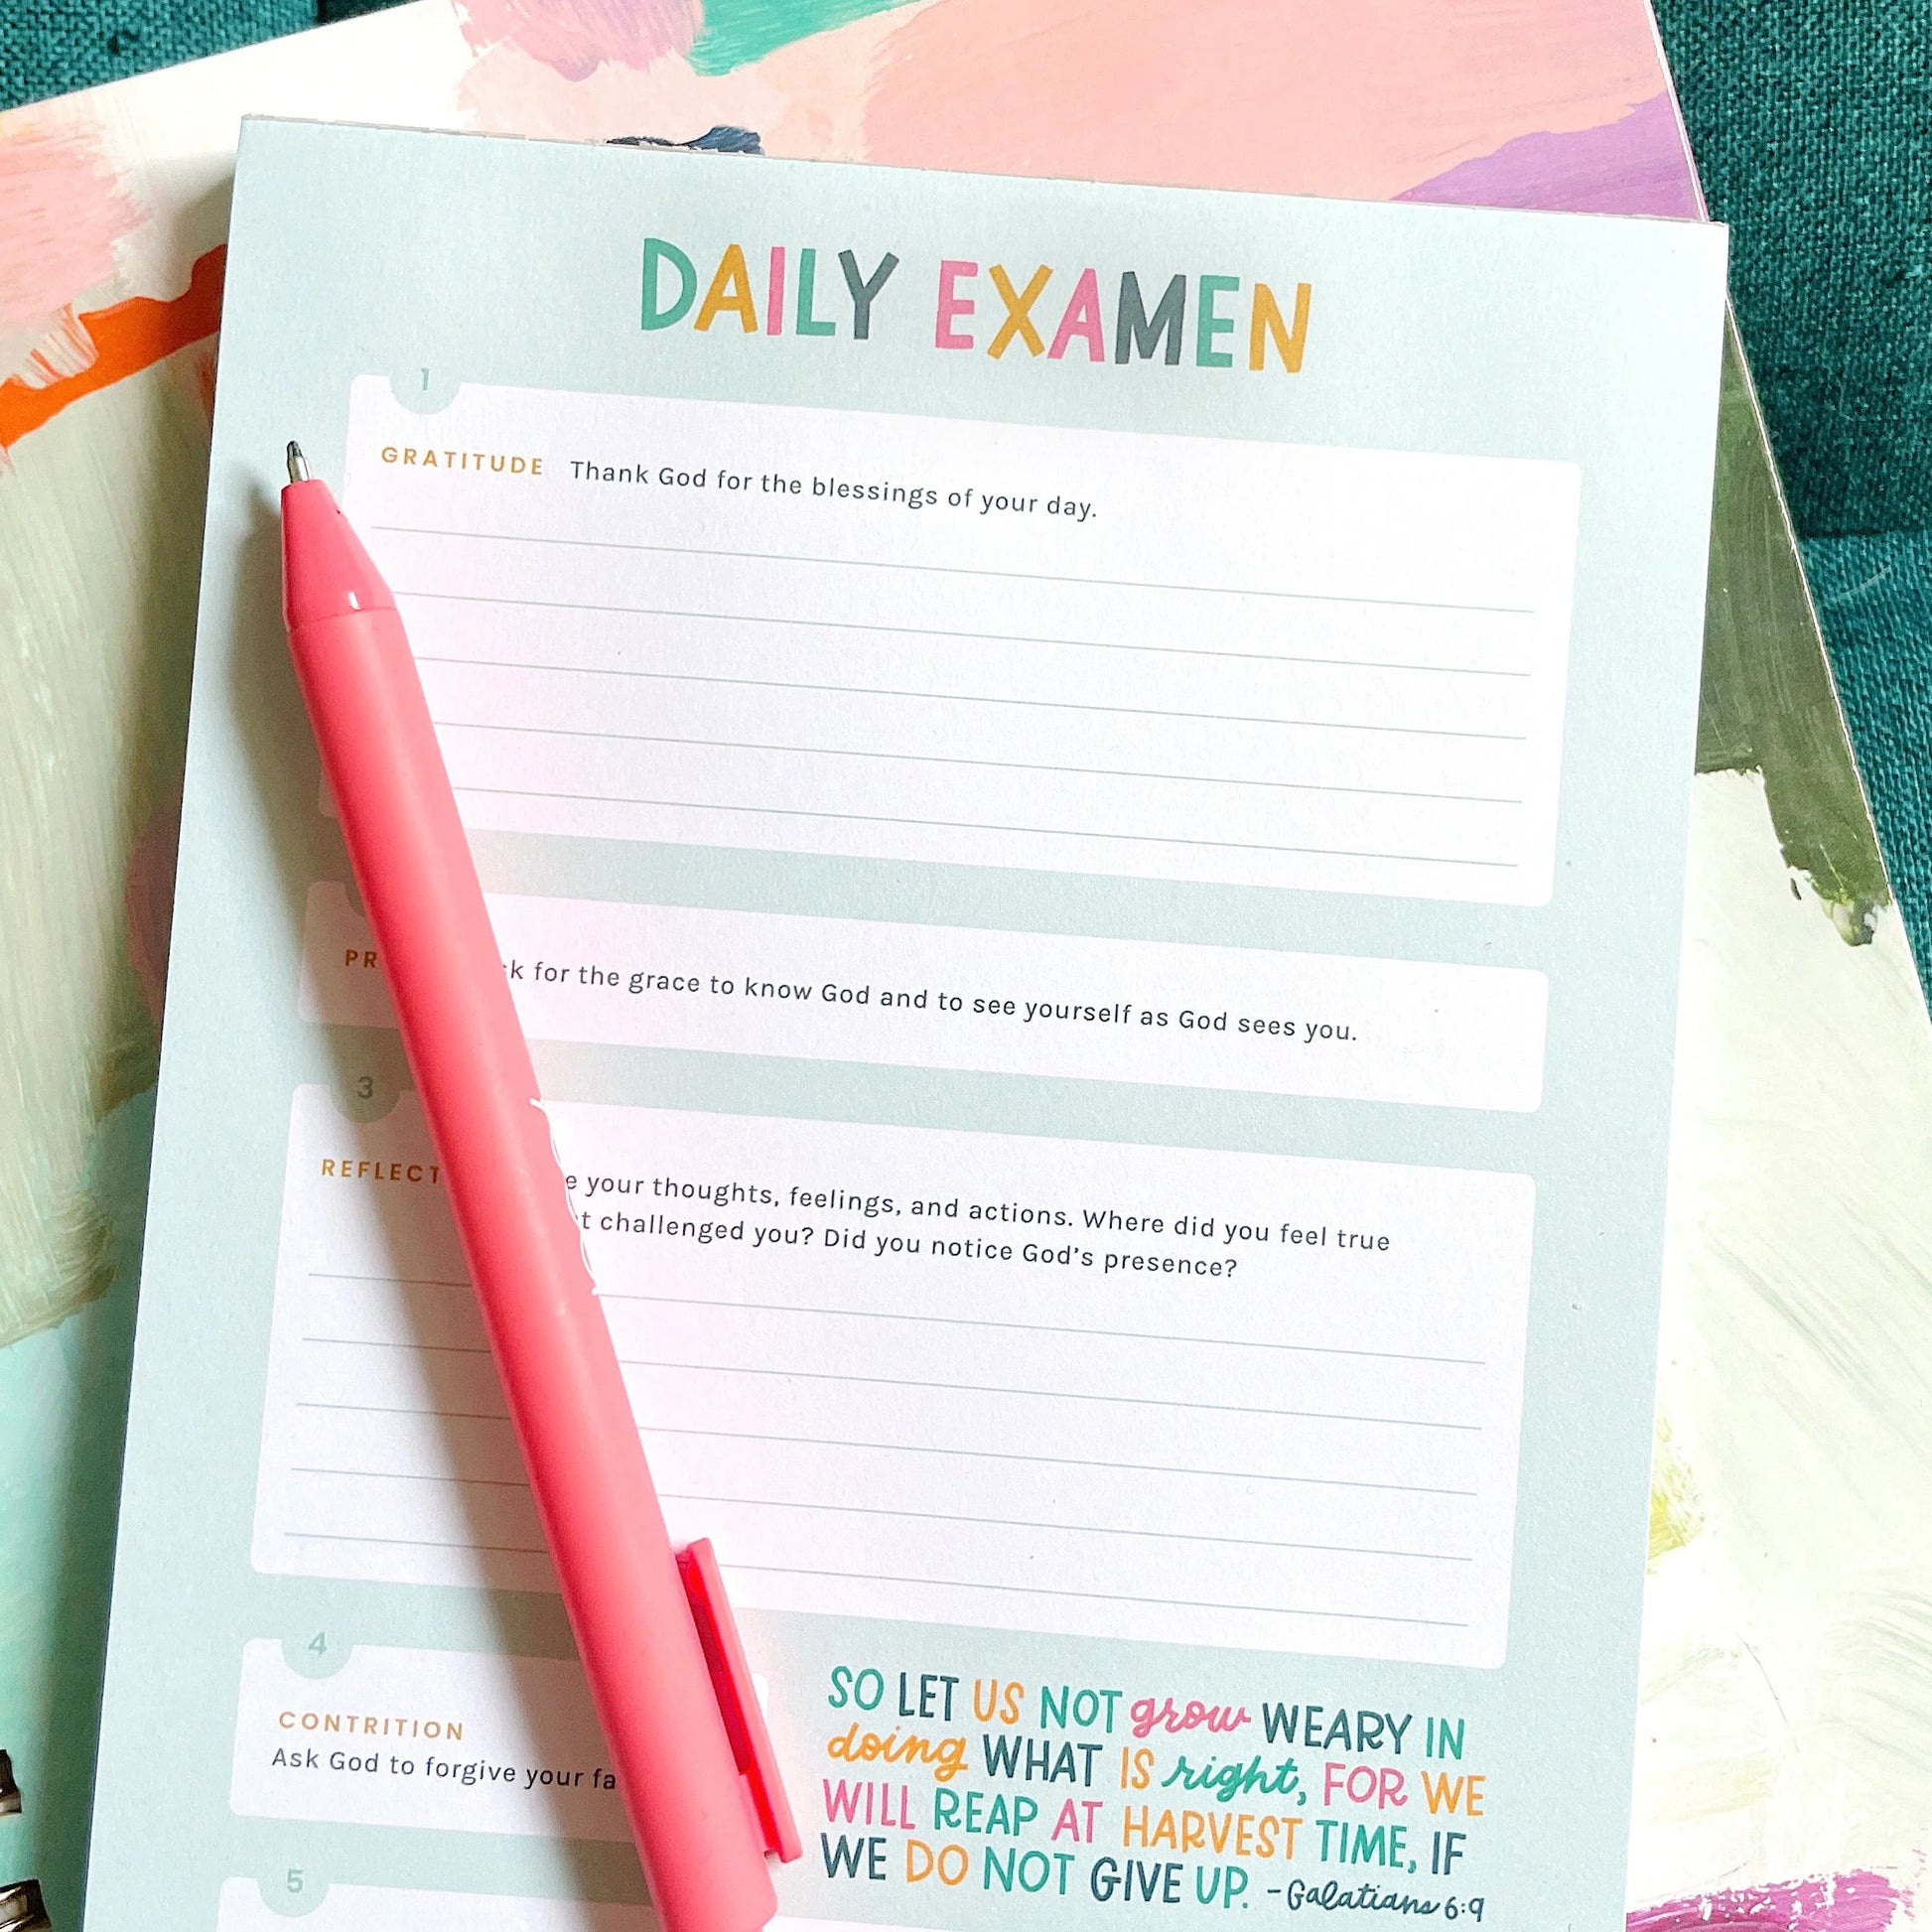 DAILY EXAMEN
1
GRATITUDE Thank God for the blessings of your day.
for the grace to know God and to see yourself as God sees you.
3
your thoughts, feelings, and actions. Where did you feel true
challenged you? Did you notice God's presence?
4
CONTRITION
Ask God to forgive your
SO LET US NOT grow WEARY IN
doing WHAT IS right, FOR WE
WILL REAP AT HARVEST TIME, IF
WE DO NOT GIVE UP. -Galatians 6:9
5